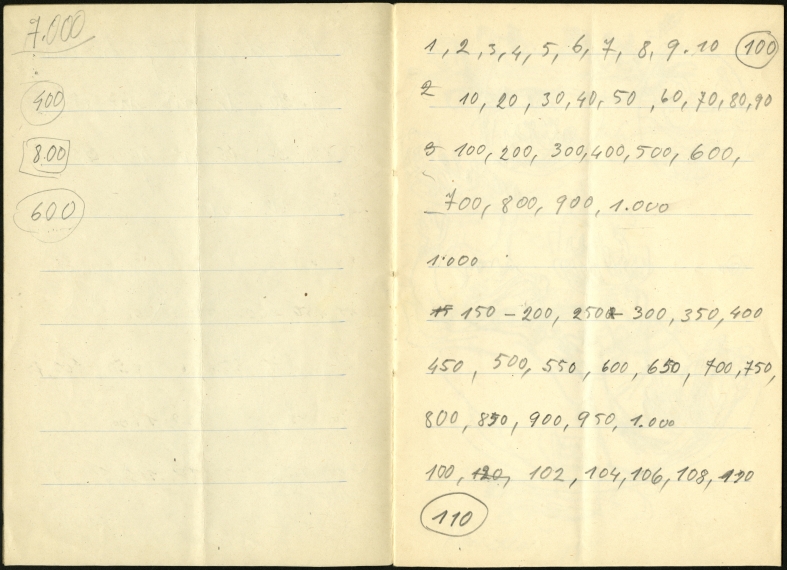 7.000
400
8.00
600
1, 2, 3, 4, 5, 6, 7, 8, 9. 10 100
2 10, 20, 30, 40, 50, 60, 70, 80, 90
3 100, 200, 300, 400, 500, 600,
700, 800, 900, 1.000
1.000
15 150 - 200, 250 300, 350, 400
450, 500, 550, 600, 650, 700, 750,
800, 850, 900, 950, 1.000
100, 120, 102, 104, 106, 108, 110
110